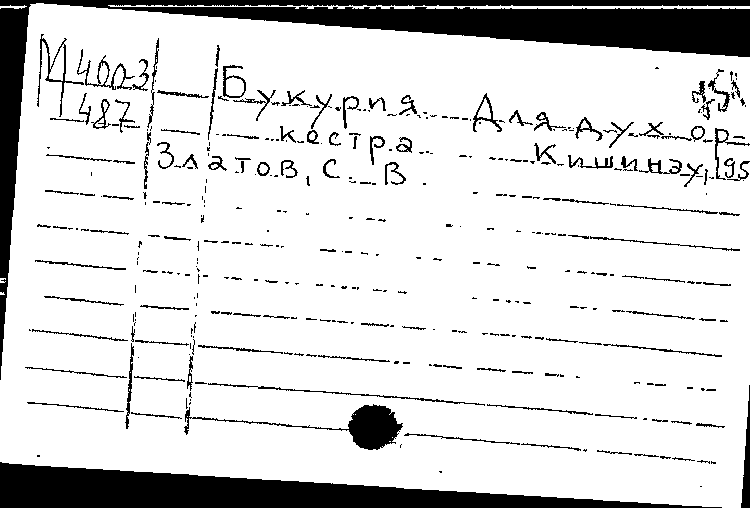 М 400-3
487
Букурия Для дух ор-
кестра Кишинэу, 195
Златов, С. В